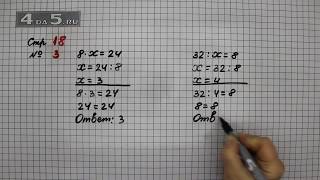 4DA5.RU
Стр 18
№ 3
8·x=24
x=24:8
x=3
8·3=24
24=24
Ответ: 3
32:x=8
x=32:8
x=4
32:4=8
8=8
Отв